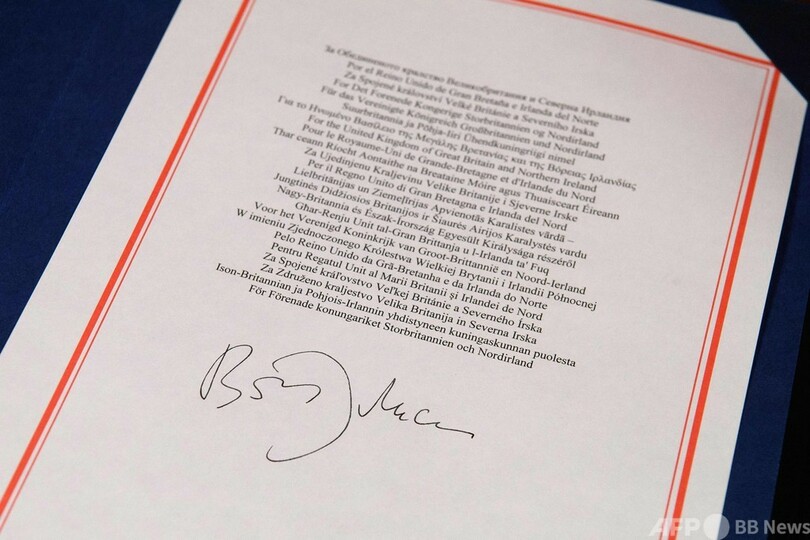 За Обединеното кралство Великобритания и Северна Ирландия
Por el Reino Unido de Gran Bretaña e Irlanda del Norte
Za Spojené království Velké Británie a Severního Irska
For Det Forenede Kongerige Storbritannien og Nordirland
Für das Vereinigte Königreich Großbritannien und Nordirland
Suurbritannia ja Põhja-Iiri Ühendkuningriigi nimel
Για το Ηνωμένο Βασίλειο της Μεγάλης Βρετανίας και της Βόρειας Ιρλανδίας
For the United Kingdom of Great Britain and Northern Ireland
Pour le Royaume-Uni de Grande-Bretagne et d'Irlande du Nord
Thar ceann Ríocht Aontaithe na Breataine Móire agus Thuaisceart Éireann
Za Ujedinjenu Kraljevinu Velike Britanije i Sjeverne Irske
Per il Regno Unito di Gran Bretagna e Irlanda del Nord
Lielbritānijas un Ziemeļīrijas Apvienotās Karalistes vārdā –
Jungtinės Didžiosios Britanijos ir Šiaurės Airijos Karalystės vardu
Nagy-Britannia és Észak-Írország Egyesült Királysága részéről
Għar-Renju Unit tal-Gran Brittanja u l-Irlanda ta' Fuq
Voor het Verenigd Koninkrijk van Groot-Brittannië en Noord-Ierland
W imieniu Zjednoczonego Królestwa Wielkiej Brytanii i Irlandii Północnej
Pelo Reino Unido da Grã-Bretanha e da Irlanda do Norte
Pentru Regatul Unit al Marii Britanii și Irlandei de Nord
Za Spojené kráľovstvo Veľkej Británie a Severného Írska
Za Združeno kraljestvo Velika Britanija in Severna Irska
Ison-Britannian ja Pohjois-Irlannin yhdistyneen kuningaskunnan puolesta
För Förenade konungariket Storbritannien och Nordirland
AFP BB News